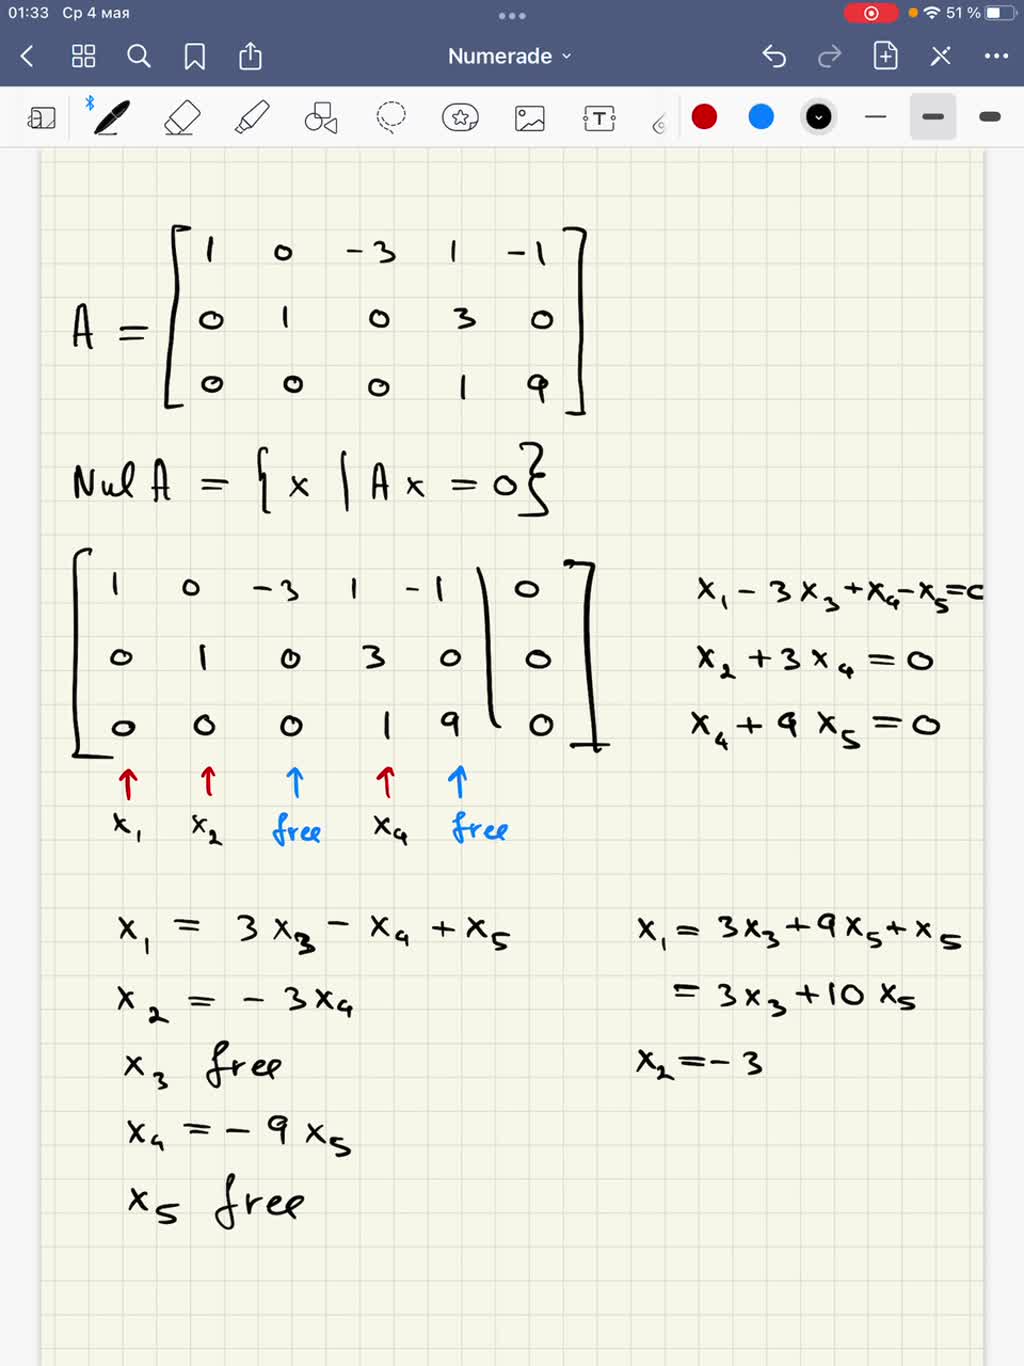 01:33 Ср 4 мая
51 %
Numerade
A = [ 1 0 -3 1 -1
0 1 0 3 0
0 0 0 1 9 ]
Nul A = { x | A x = 0 }
[ 1 0 -3 1 -1 | 0
0 1 0 3 0 | 0
0 0 0 1 9 | 0 ]
x₁ - 3x₃ + x₄ - x₅ = 0
x₂ + 3x₄ = 0
x₄ + 9x₅ = 0
↑ ↑ ↑ ↑ ↑
x₁ x₂ free x₄ free
x₁ = 3x₃ - x₄ + x₅
x₂ = - 3x₄
x₃ free
x₄ = - 9x₅
x₅ free
x₁ = 3x₃ + 9x₅ + x₅
= 3x₃ + 10x₅
x₂ = - 3